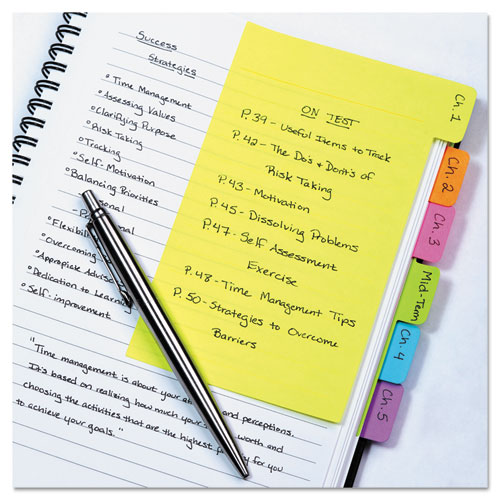 Success
Strategies
Time Management
Assessing Values
Clarifying Purpose
Risk Taking
Tracking
Self-Motivation
Balancing Priorities
Flexibility
Overcoming
Appropiate
Dedication to Learning
Self-improvement
"Time management is about your
and perceptions.
It's based on realizing how much your
worth and
choosing the activities that are the highest
for you
to achieve your goals."
ON TEST
P. 39 - Useful Items to Track
P. 42 - The Do's & Dont's of
Risk Taking
P. 43 - Motivation
P. 45 - Dissolving Problems
P. 47 - Self Assessment
Exercise
P. 48 - Time Management Tips
P. 50 - Strategies to Overcome
Barriers
Ch. 1
Ch. 2
Ch. 3
Mid-Term
Ch. 4
Ch. 5